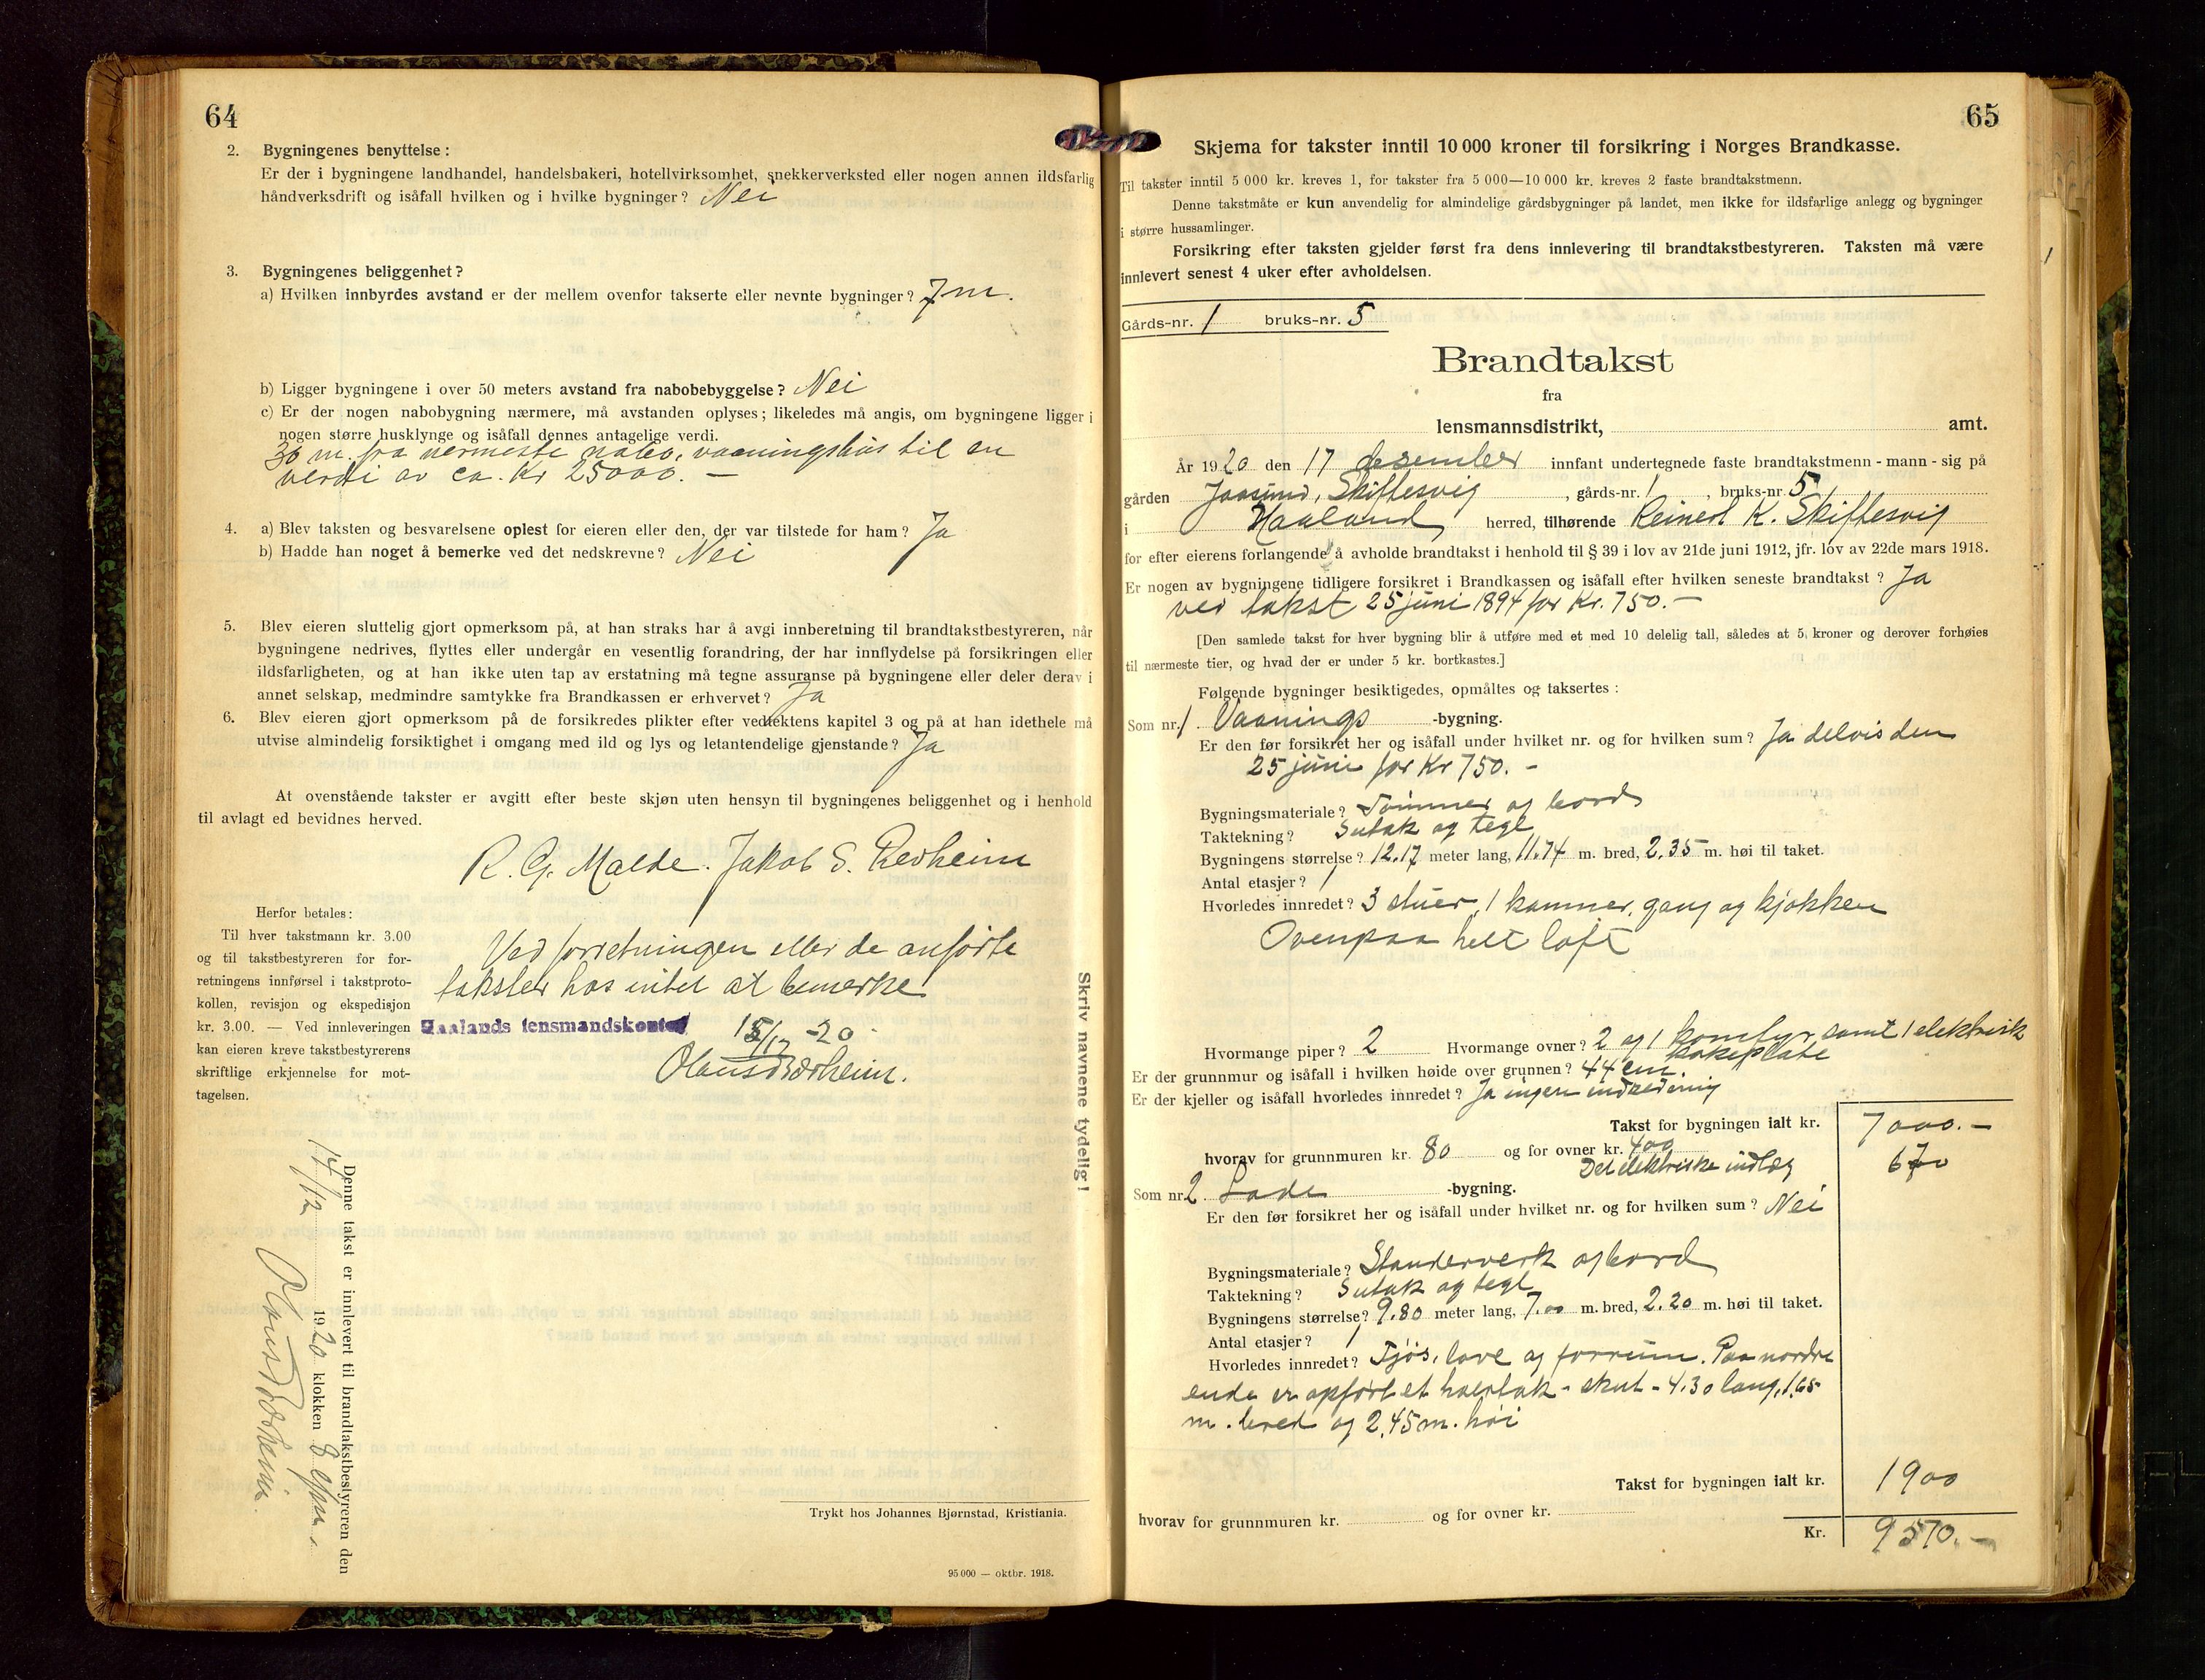 64
2. Bygningenes benyttelse:
Er der i bygningene landhandel, handelsbakeri, hotellvirksomhet, snekkerverksted eller nogen annen ildsfarlig
håndverksdrift og isåfall hvilken og i hvilke bygninger? Nei
3. Bygningenes beliggenhet?
a) Hvilken innbyrdes avstand er der mellem ovenfor takserte eller nevnte bygninger? 7 m.
b) Ligger bygningene i over 50 meters avstand fra nabobebyggelse? Nei
c) Er der nogen nabobygning nærmere, må avstanden oplyses; likeledes må angis, om bygningene ligger i
nogen større husklynge og isåfall dennes antagelige verdi.
30 m. fra nermeste nabo, vaaningshus til en
verdi av ca. Kr 25000. —
4. a) Blev taksten og besvarelsene oplest for eieren eller den, der var tilstede for ham? Ja
b) Hadde han noget å bemerke ved det nedskrevne? Nei
5. Blev eieren sluttelig gjort opmerksom på, at han straks har å avgi innberetning til brandtakstbestyreren, når
bygningene nedrives, flyttes eller undergår en vesentlig forandring, der har innflydelse på forsikringen eller
ildsfarligheten, og at han ikke uten tap av erstatning må tegne assuranse på bygningene eller deler derav i
annet selskap, medmindre samtykke fra Brandkassen er erhvervet? Ja
6. Blev eieren gjort opmerksom på de forsikredes plikter efter vedtektens kapitel 3 og på at han idethele må
utvise almindelig forsiktighet i omgang med ild og lys og letantendelige gjenstande? Ja
At ovenstående takster er avgitt efter beste skjøn uten hensyn til bygningenes beliggenhet og i henhold
til avlagt ed bevidnes herved.
R. G. Malde. Jakob S. Revheim
Herfor betales:
Til hver takstmann kr. 3.00
og til takstbestyreren for for-
retningens innførsel i takstproto-
kollen, revisjon og ekspedisjon
kr. 3.00. — Ved innleveringen
kan eieren kreve takstbestyrerens
skriftlige erkjennelse for mot-
tagelsen.
Ved forretningen eller de anførte
takster has intet at bemerke
Haalands lensmandskontor 15/12 -20
Skriv navnene tydelig!
Denne takst er innlevert til brandtakstbestyreren den
14/12 1920 klokken 8
Trykt hos Johannes Bjørnstad, Kristiania.
95 000 — oktbr. 1918.
65
Skjema for takster inntil 10 000 kroner til forsikring i Norges Brandkasse.
Til takster inntil 5 000 kr. kreves 1, for takster fra 5 000—10 000 kr. kreves 2 faste brandtakstmenn.
Denne takstmåte er kun anvendelig for almindelige gårdsbygninger på landet, men ikke for ildsfarlige anlegg og bygninger
i større hussamlinger.
Forsikring efter taksten gjelder først fra dens innlevering til brandtakstbestyreren. Taksten må være
innlevert senest 4 uker efter avholdelsen.
Gårds-nr. 1 bruks-nr. 5
Brandtakst
fra
lensmannsdistrikt, amt.
År 1920 den 17 desember innfant undertegnede faste brandtakstmenn - mann - sig på
gården Jaasund, Skiftesvig, gårds-nr. 1, bruks-nr. 5
i Haaland herred, tilhørende Reinert K. Skiftesvig
for efter eierens forlangende å avholde brandtakst i henhold til § 39 i lov av 21de juni 1912, jfr. lov av 22de mars 1918.
Er nogen av bygningene tidligere forsikret i Brandkassen og isåfall efter hvilken seneste brandtakst? Ja
ved takst 25 juni 1894 for Kr. 750. —
[Den samlede takst for hver bygning blir å utføre med et med 10 delelig tall, således at 5 kroner og derover forhøies
til nærmeste tier, og hvad der er under 5 kr. bortkastes.]
Følgende bygninger besiktigedes, opmåltes og taksertes:
Som nr. 1 Vaanings -bygning.
Er den før forsikret her og isåfall under hvilket nr. og for hvilken sum? Ja delvis den
25 juni for Kr 750. -
Bygningsmateriale? Tømmer og bord
Taktekning? Sutak og tegl
Bygningens størrelse? 12.17 meter lang, 11.74 m. bred, 2.35 m. høi til taket.
Antal etasjer? 1
Hvorledes innredet? 3 stuer, 1 kammer, gang og kjøkken
Ovenpaa helt loft
Hvormange piper? 2 Hvormange ovner? 2 og 1 komfyr samt 1 elektrisk
kokeplate
Er der grunnmur og isåfall i hvilken høide over grunnen? 44 cm.
Er der kjeller og isåfall hvorledes innredet? Ja ingen indredning
Takst for bygningen ialt kr. 7000. —
hvorav for grunnmuren kr. 80 og for ovner kr. 400
Det elektriske indlæg 670
Som nr. 2 Lade -bygning.
Er den før forsikret her og isåfall under hvilket nr. og for hvilken sum? Nei
Bygningsmateriale? Standerverk og bord
Taktekning? Sutak og tegl
Bygningens størrelse? 9.80 meter lang, 7.00 m. bred, 2.20 m. høi til taket.
Antal etasjer? 1
Hvorledes innredet? Fjøs, løve og forrum. Paa nordre
ende er opført et halvtak - skut - 4.30 lang, 1.65
m. bred og 2,45 m. høi
Takst for bygningen ialt kr. 1900
hvorav for grunnmuren kr. og for ovner kr.
Kr. 9570. —